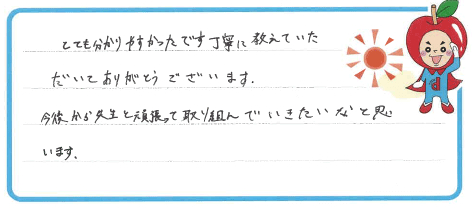 とても分かりやすかったです丁寧に教えていた
だいてありがとうございます.
今後から先生と頑張って取り組んでいきたいなと思
います.